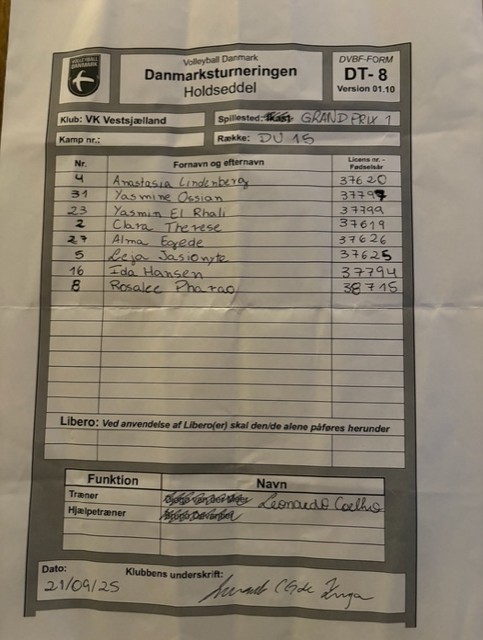 VOLLEYBALL DANMARK
Volleyball Danmark
Danmarksturneringen
Holdseddel
DVBF-FORM
DT- 8
Version 01.10
Klub: VK Vestsjælland
Spillested: GRAND PRIX 1
Kamp nr.:
Række: DU 15
Nr. Fornavn og efternavn Licens nr. - Fødselsår
4 Anastasia Lindenberg 37620
31 Yasmine Ossian 37797
23 Yasmin El Rhali 37799
2 Clara Therese 37619
27 Alma Egede 37626
5 Leja Jasionyte 37625
16 Ida Hansen 37794
8 Rosalee Pharao 38715
Libero: Ved anvendelse af Libero(er) skal den/de alene påføres herunder
Funktion Navn
Træner Leonardo Coelho
Hjælpetræner
Dato: Klubbens underskrift:
21/09/25